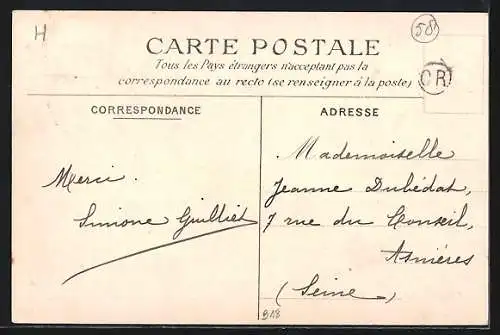 H
58
CARTE POSTALE
Tous les Pays étrangers n'acceptent pas la
correspondance au recto (se renseigner à la poste)
OR
CORRESPONDANCE
ADRESSE
Merci.
Simone Guilliet
Mademoiselle
Jeanne Dubédat,
7 rue du Conseil,
Asnières
(Seine)
918